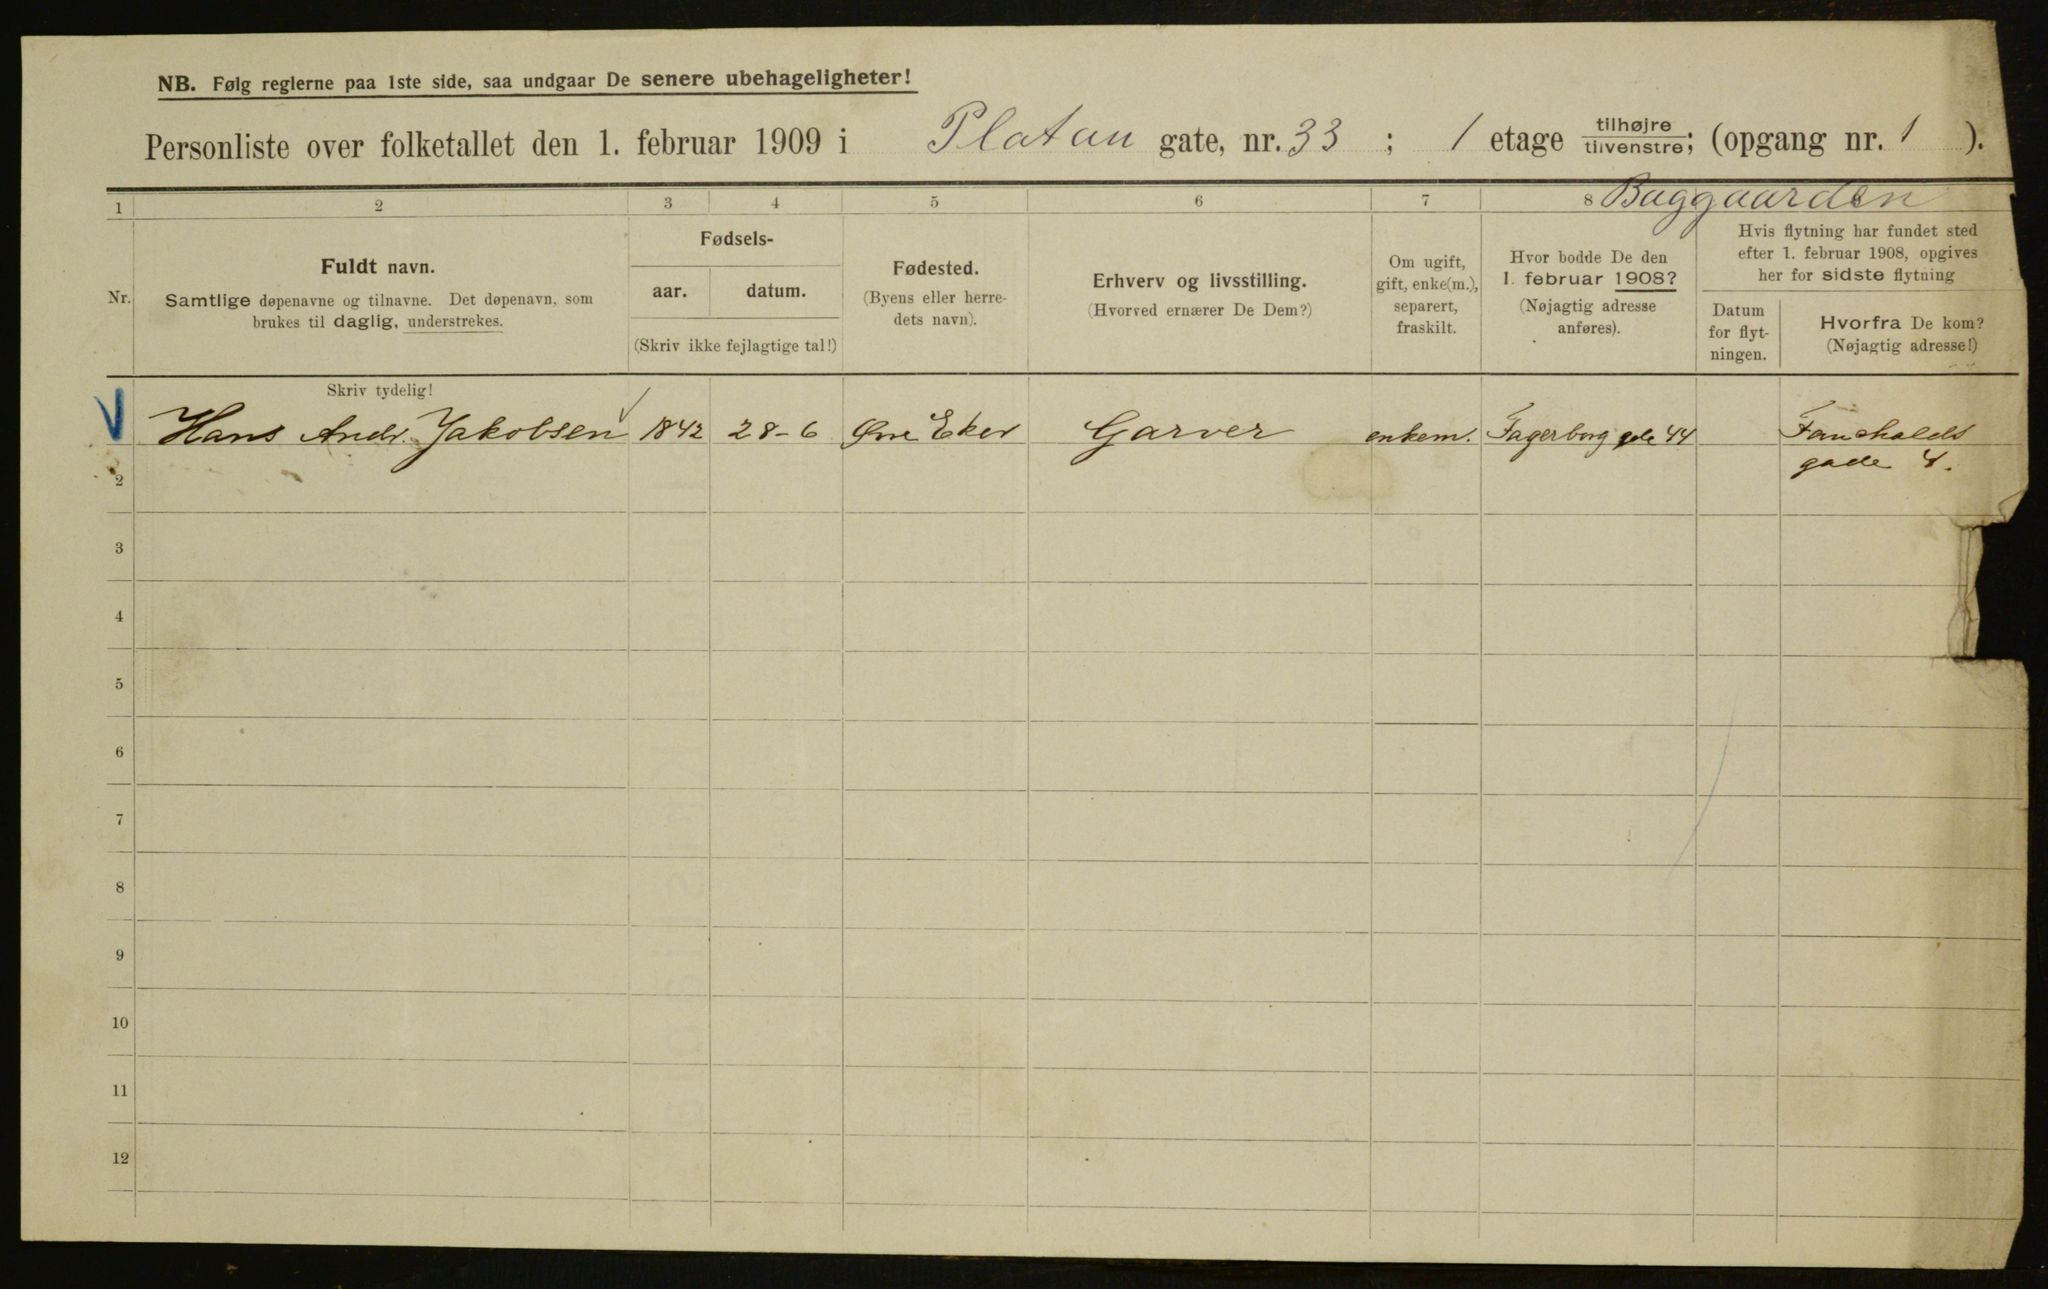 NB. Følg reglerne paa 1ste side, saa undgaar De senere ubehageligheter!
Personliste over folketallet den 1. februar 1909 i Platan gate, nr. 33 ; 1 etage tilhøjre tilvenstre; (opgang nr. 1 ).
1 2 3 4 5 6 7 8 Baggaarden
Nr.
Fuldt navn.
Samtlige døpenavne og tilnavne. Det døpenavn, som
brukes til daglig, understrekes.
Skriv tydelig!
Fødsels-
aar. datum.
(Skriv ikke fejlagtige tal!)
Fødested.
(Byens eller herre-
dets navn).
Erhverv og livsstilling.
(Hvorved ernærer De Dem?)
Om ugift,
gift, enke(m.),
separert,
fraskilt.
Hvor bodde De den
1. februar 1908?
(Nøjagtig adresse
anføres).
Hvis flytning har fundet sted
efter 1. februar 1908, opgives
her for sidste flytning
Datum
for flyt-
ningen.
Hvorfra De kom?
(Nøjagtig adresse!)
Hans Andr. Jakobsen 1842 28-6 Øvre Eker Garver enkem. Fagerborg gde 44 Fauchalds
gade 4.
2
3
4
5
6
7
8
9
10
11
12